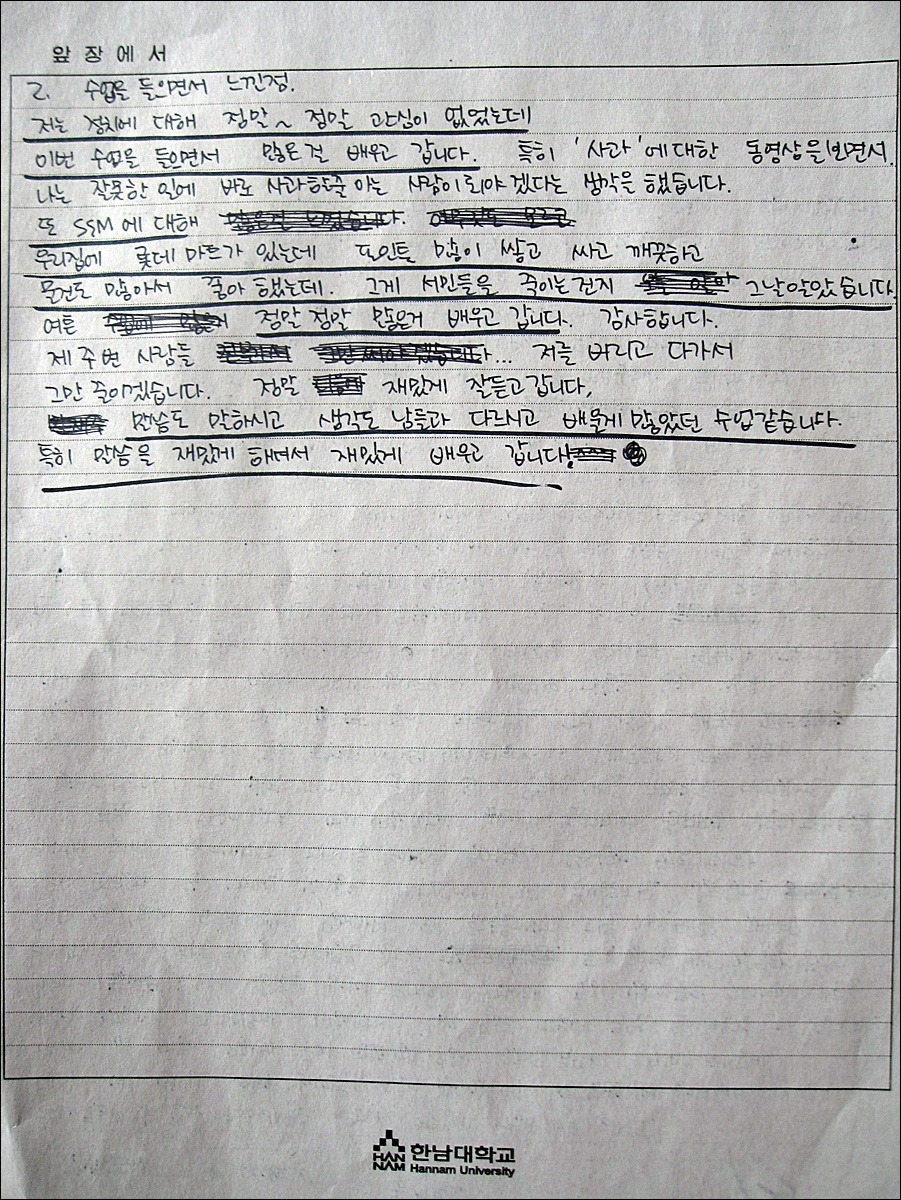 앞 장 에 서
2. 수업을 들으면서 느낀점.
저는 정치에 대해 정말~ 정말 관심이 없었는데
이번 수업을 들으면서 많은걸 배우고 갑니다. 특히 '사과'에 대한 동영상을 보면서
나는 잘못한 일에 바로 사과할줄 아는 사람이 되야 겠다는 생각을 했습니다.
또 SSM에 대해
우리집에 롯데 마트가 있는데 포인트 많이 쌓고 싸고 깨끗하고
물건도 많아서 좋아 했는데. 그게 서민들을 죽이는건지 그날 알았습니다.
여튼 정말 정말 많은거 배우고 갑니다. 감사합니다.
제 주변 사람들 ... 저를 버리고 다가서
그만 줄이겠습니다. 정말 재밌게 잘듣고 갑니다.
말씀도 말하시고 생각도 남들과 다르시고 배울게 많았던 수업같습니다.
특히 말씀을 재밌게 해여서 재밌게 배우고 갑니다!
HAN NAM 한남대학교
Hannam University